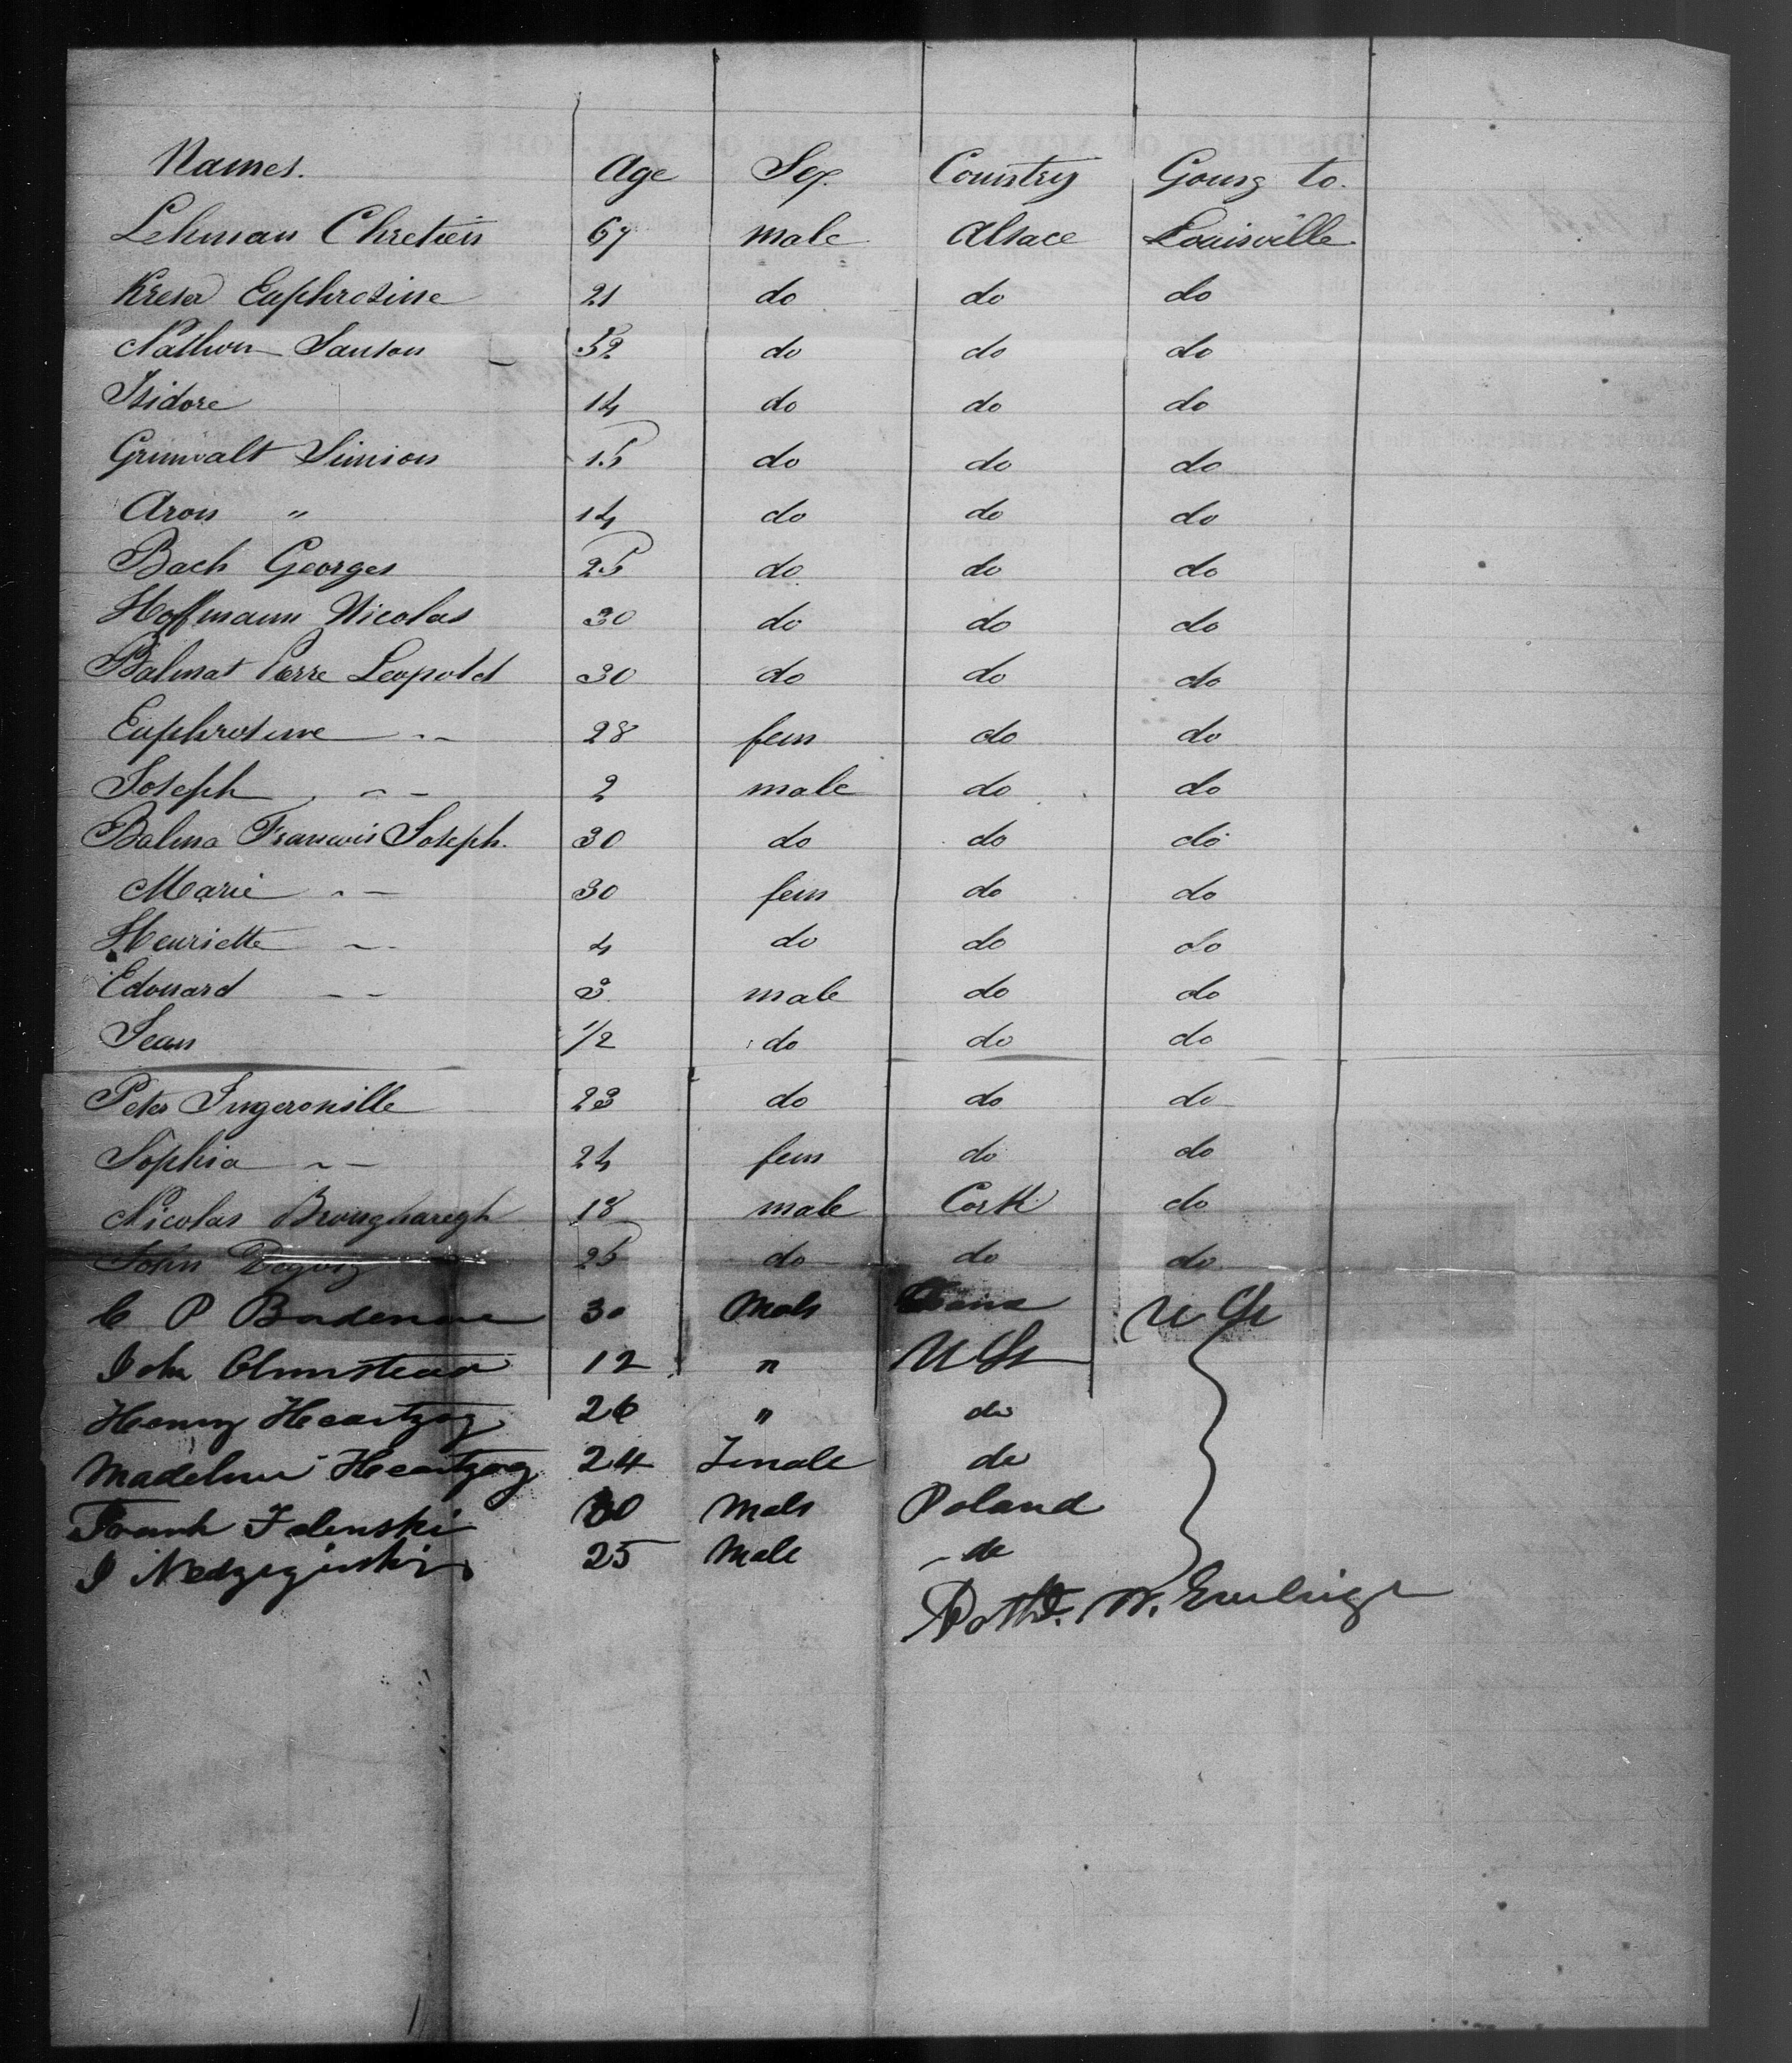 Names. Age Sex. Country Going to.
Lehman Chretien 67 male Alsace Louisville
Kreser Euphrosine 21 do do do
Nathan Sanson 52 do do do
Isidore 14 do do do
Grunwalt Simion 15 do do do
Aron " 14 do do do
Bach Georges 25 do do do
Hoffmann Nicolas 30 do do do
Balmat Pierre Leopold 30 do do do
Euphrosine " 28 fem do do
Joseph " 2 male do do
Balma Francois Joseph. 30 do do do
Marie " 30 fem do do
Henriette " 4 do do do
Edouard " 3 male do do
Jean 1/2 do do do
Peter Ingeronille 23 do do do
Sophia " 24 fem do do
Nicolas 18 male Cork do
John 25 do do do
C P 30 Male U St
John Olmstead 12 " U St
Henry Heartzog 26 " do
Madeline Heartzog 24 Female do
Frank Falenski 30 Male Poland
J 25 Male do
W.